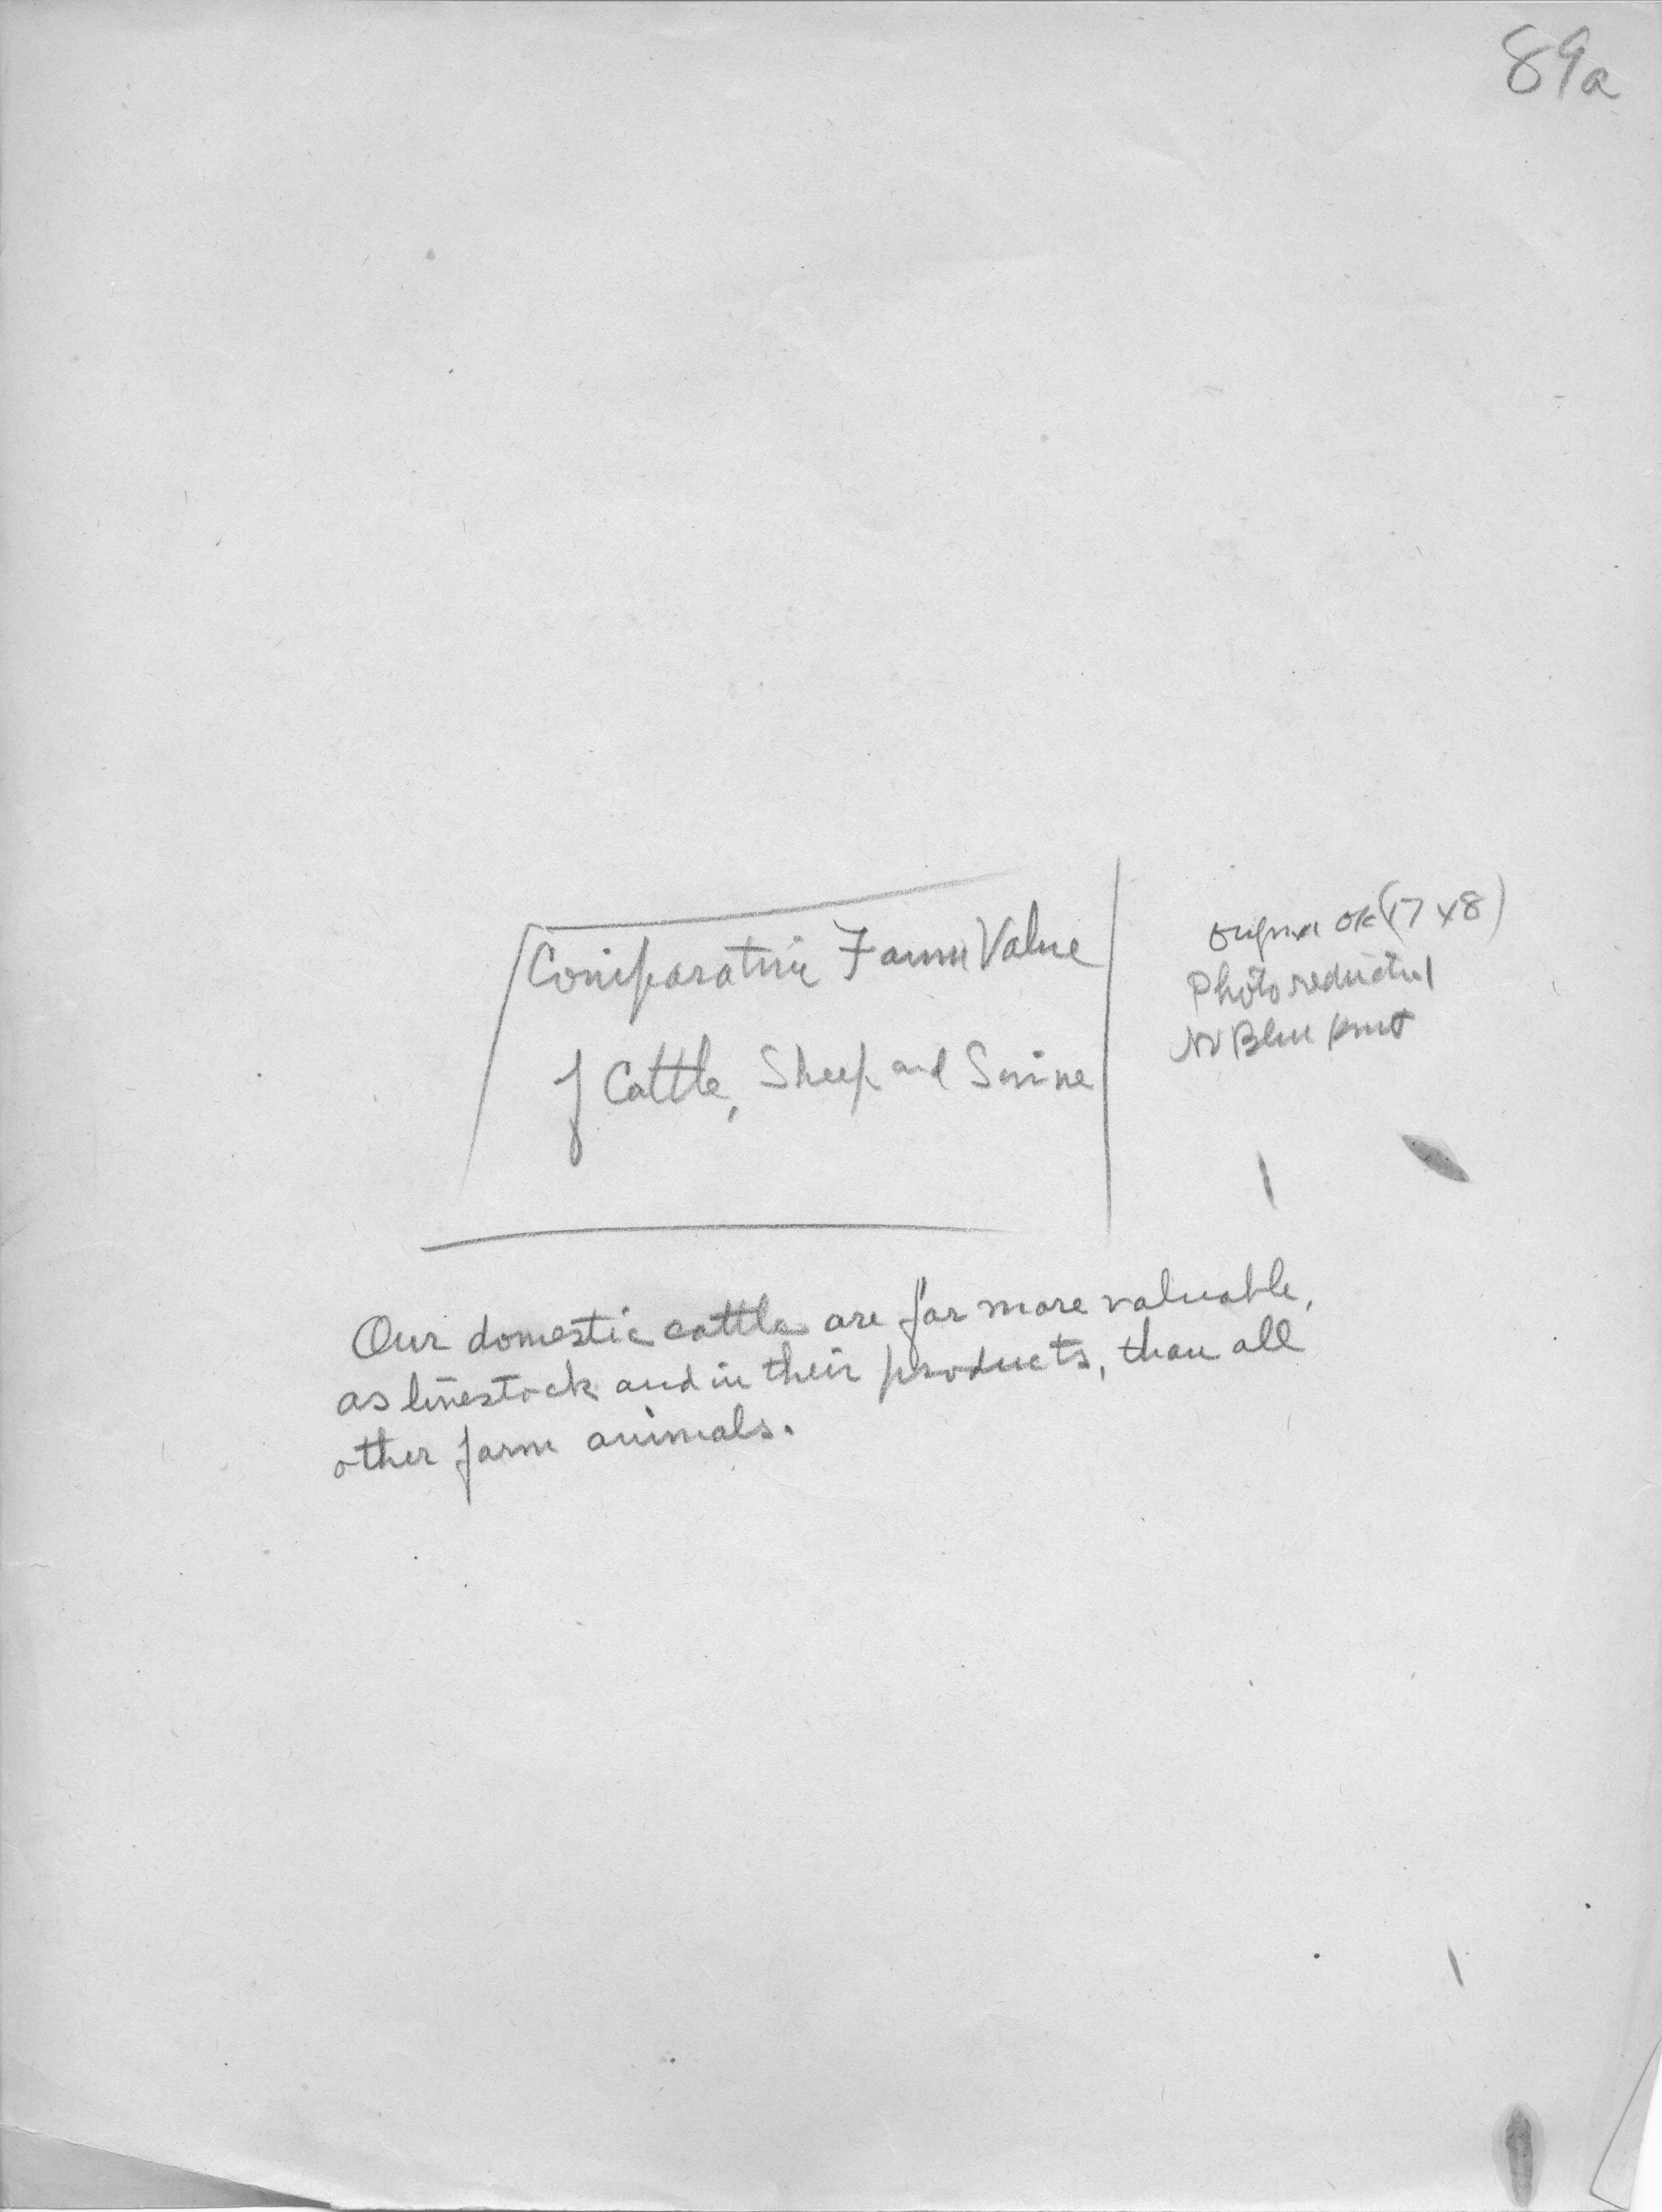 89a
Comparative Farm Value
of Cattle, Sheep and Swine
Original OK (17 x 8)
Photo reduction
No Blue print
Our domestic cattle are far more valuable,
as livestock and in their products, than all
other farm animals.